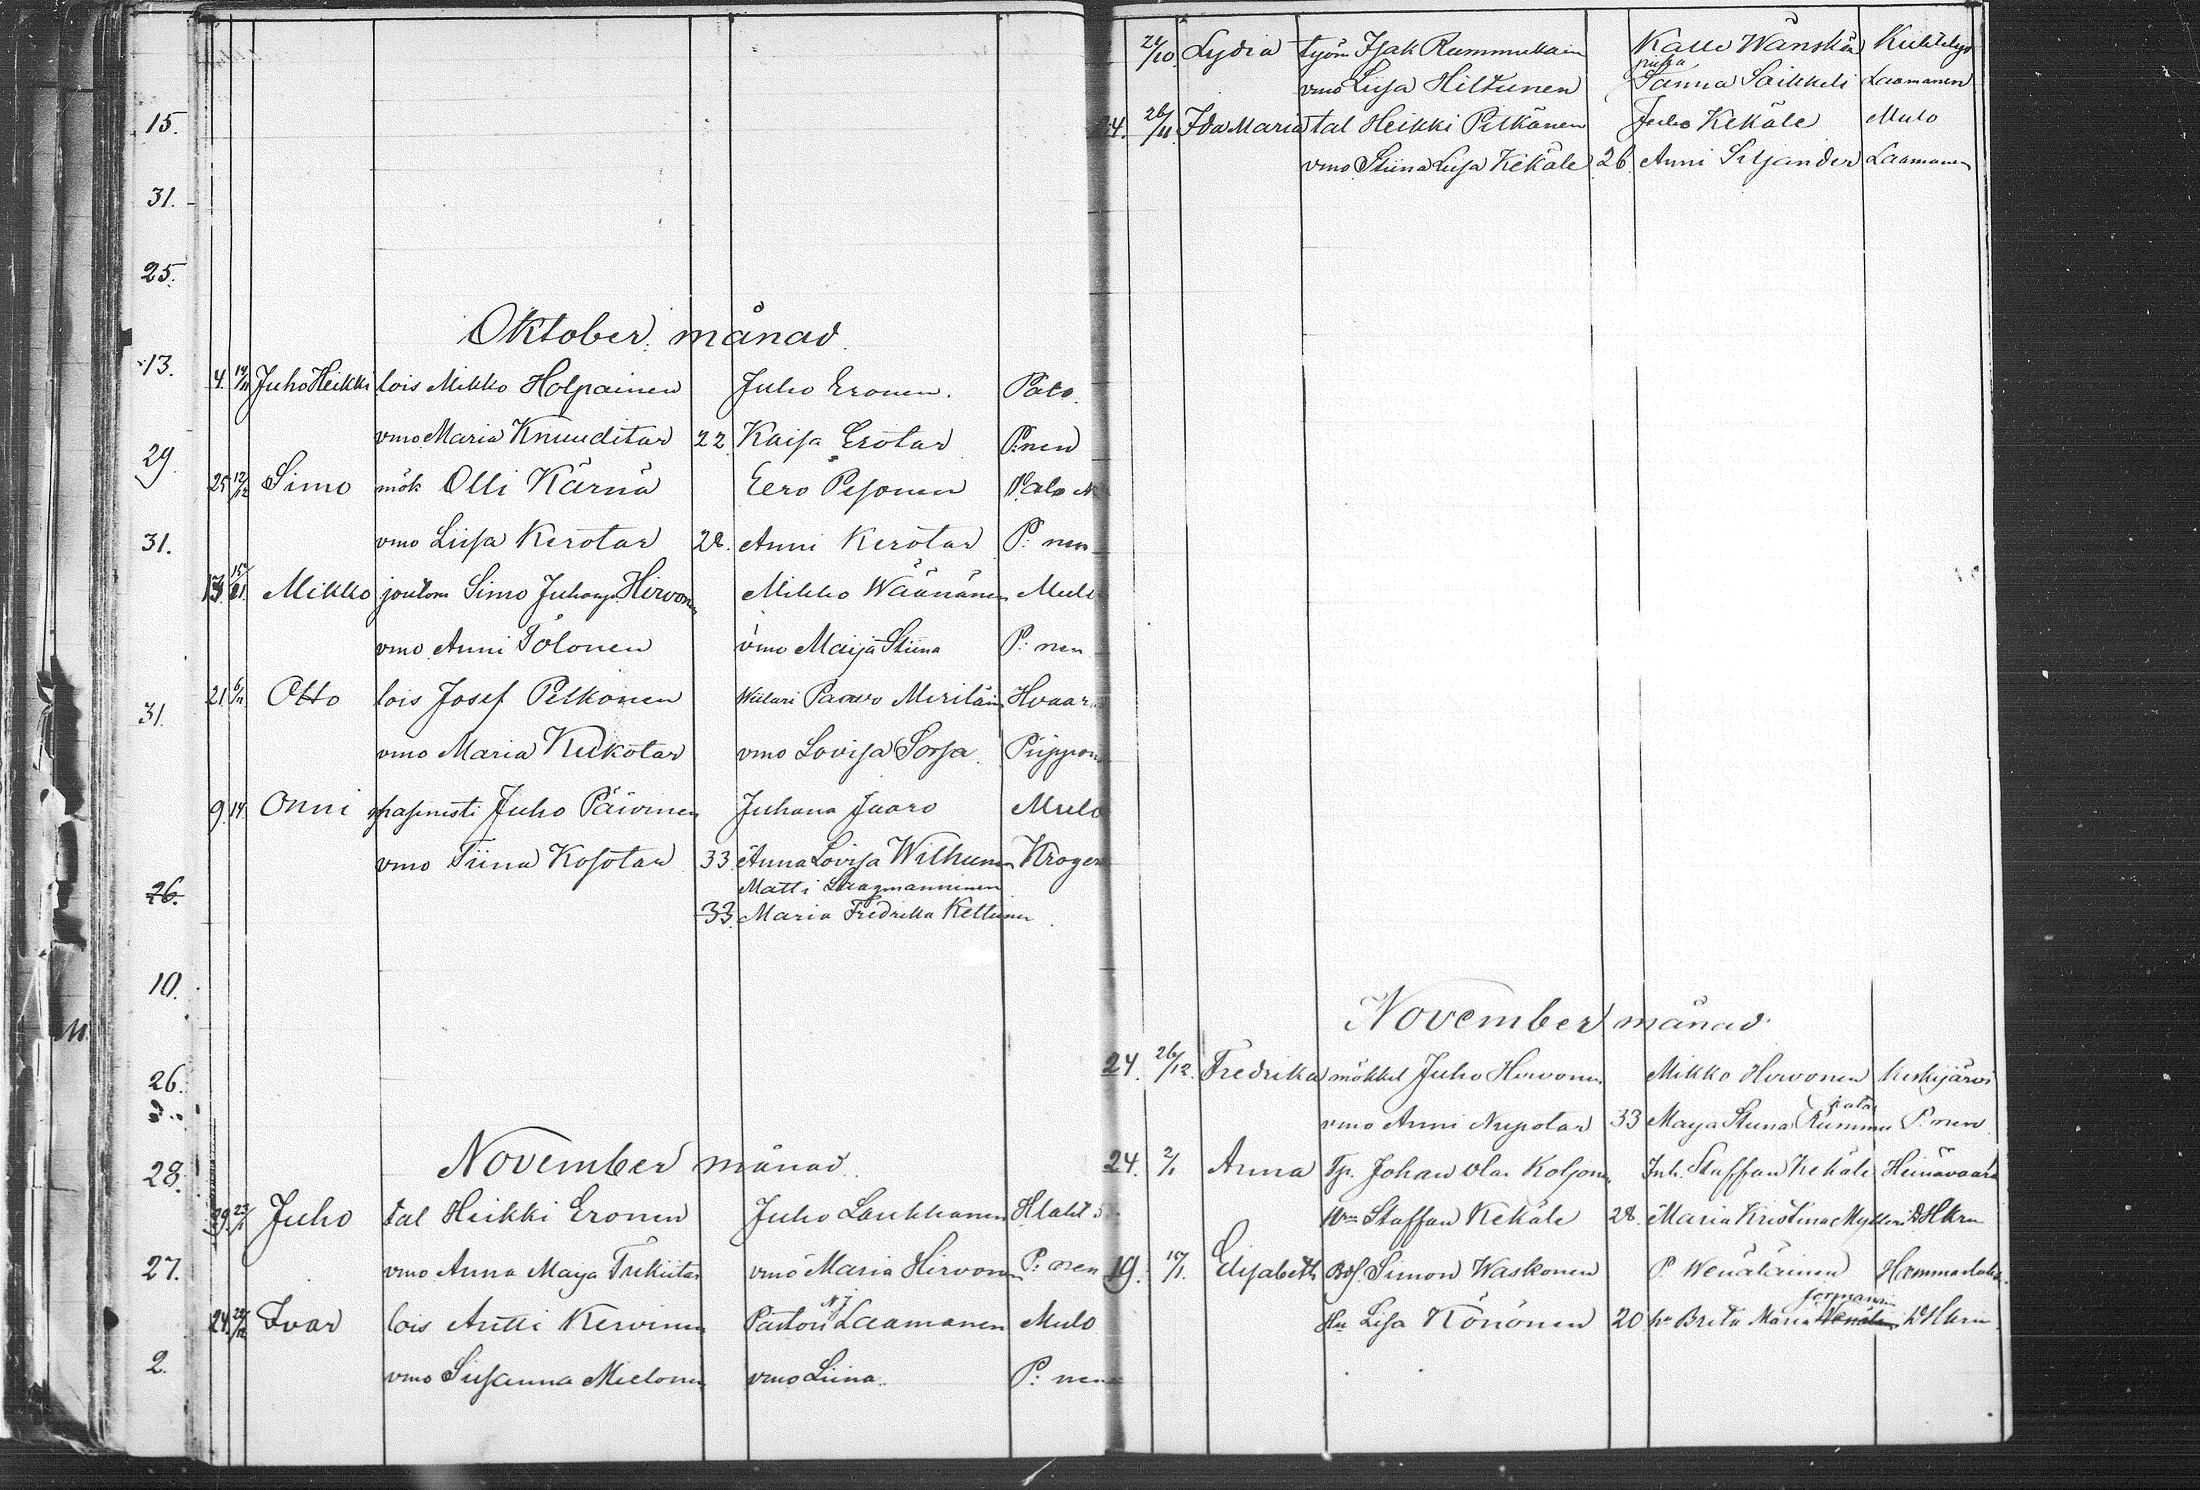 15.
31.
25.
13.
29
31.
31.
26.
10.
26.
28.
27.
2.
Oktober månad
4. 14/11 Juho Heikki lois Mikko Holpainen Juho Eronen. Palo
vmo Maria Knuuditar 22 Kaisa Erotar P:nen
25 12/12 Simo mök Olli Kärnä Eero Pesonen Palo
vmo Liisa Kerotar 28. Anni Kerotar P: nen
13 Mikko Simo Juhanp. Hirvonen Mikko Wäänänen Mulo
vmo Anni Tolonen vmo Maija Stiina P: nen
21 6/11 Otto lois Josef Pelkonen Paavo Hvaar
vmo Maria Kukotar vmo Lovisa Sorsa. Piippon
9. 14 Onni Juho Päivinen Juhana Jaaro Mulo
vmo Tiina Kosotar 33. Anna Lovisa Wilhunen Kroger
Matti Laagmanninen
33. Maria Fredrika Kettunen
November månad
29. Juho tal Heikki Eronen Juho Laukkanen
vmo Anna Maija vmo Maria Hirvonen P: nen
24. Ivar lois Antti Kervinen Pastori N J Laamanen Mulo
vmo Susanna Mielonen vmo Liina. P: nen
21/10 Lydia työm Isak Rummukain Kalle Wänskä
vmo Liisa Hiltunen Saikkeli Laamanen
24. 26/11. Ida Maria tal Heikki Pitkänen Juho Kekäle Mulo
vmo Stiina Liisa Kekäle 26 Anni Siljander Laamanen
November månad.
24. 26/12. Fredrika mökkil Juho Hirvonen Mikko Hirvonen Keskijärvi
vmo Anni 33 Maija Stiina Rummu P: nen
24. 2/1 Anna Johan Olai Koljonen Inh. Staffan Kekäle Heinävaara
Staffan Kekäle 28. Maria Kristina
19. 15/1. Elisabeth Simon Waskonen P. Wenäläinen Hammaslaks.
Hu Lisa Könönen 20 hu Brita Maria